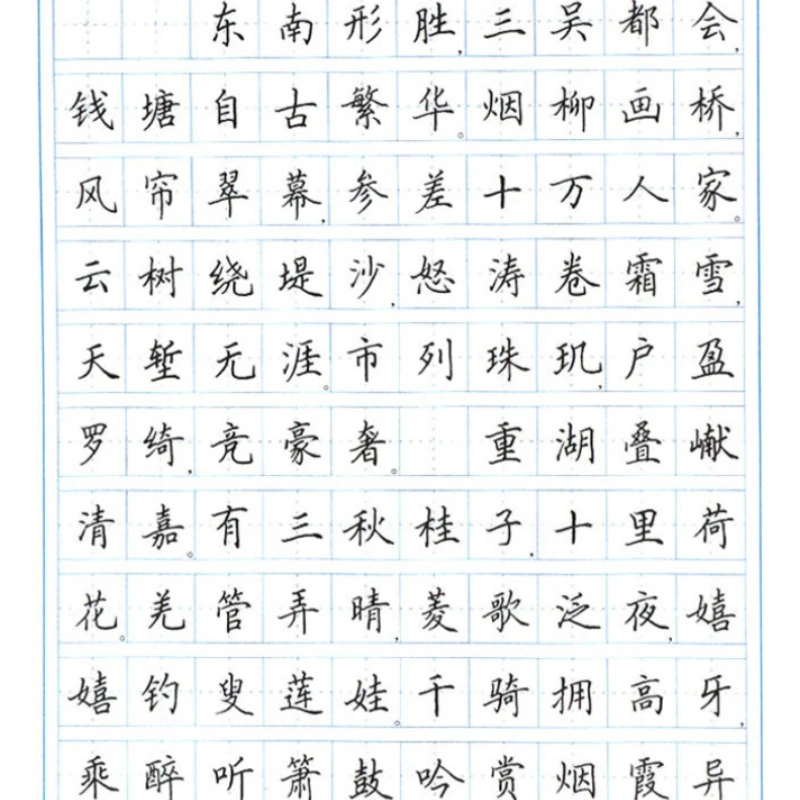 东南形胜,三吴都会,
钱塘自古繁华。烟柳画桥,
风帘翠幕,参差十万人家。
云树绕堤沙,怒涛卷霜雪,
天堑无涯。市列珠玑,户盈
罗绮,竞豪奢。 重湖叠巘
清嘉。有三秋桂子,十里荷
花。羌管弄晴,菱歌泛夜,嬉
嬉钓叟莲娃。千骑拥高牙,
乘醉听箫鼓吟赏烟霞异